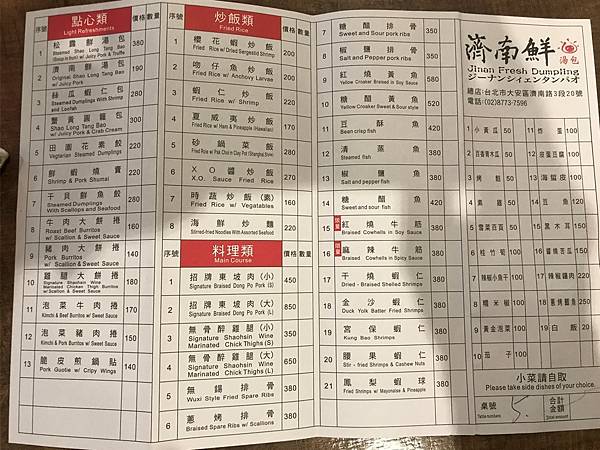 點心類
Light Refreshments
序號 價格 數量
1 松露鮮湯包 380
Steamed Shao Long Tang Bao
(Soup in fruit) w/ Juicy Pork & Truffle
2 濟南鮮湯包 190
Original Shao Long Tang Bao
w/ Juicy Pork
3 絲瓜蝦仁包
Steamed Dumplings With Shrimp
and Loofah
4 蟹黃圓籠包
Shao Long Tang Bao
w/ Juicy Pork & Crab Cream
5 田園花素餃
Vegtarian Steamed Dumplings
6 鮮蝦燒賣
Shrimp & Pork Shumai
7 干貝鮮魚餃
Steamed Dumplings
With Scallops and Seafood
8 牛肉大餅捲
Roast Beef Burritos
w/ Scallion & Sweet Sauce
9 豬肉大餅捲
Pork Burritos
w/ Scallion & Sweet Sauce
10 雞腿大餅捲
Signature Shaohsin Wine
Marinated Chicken Thigh Burritos
w/ Scallion & Sweet Sauce
11 泡菜牛肉捲
Kimchi & Beef Burritos w/ Sweet Sauce
12 泡菜豬肉捲
Kimchi & Pork Burritos w/ Sweet Sauce
13 脆皮煎鍋貼
Pork Guotie w/ Cripy Wings
炒飯類
Fried Rice
序號 價格 數量
1 櫻花蝦炒飯 200
Fried Rice w/ Dried Sergestid Shrimp
2 吻仔魚炒飯 200
Fried Rice w/ Anchovy Larvae
3 蝦仁炒飯
Fried Rice w/ Shrimp
4 夏威夷炒飯
Fried Rice w/ Ham & Pineapple (Hawaiian)
5 砂鍋菜飯
Fried Rice w/ Pak Choi in Clay Pot (Shanghai Style)
6 XO醬炒飯
X.O. Sauce Fried Rice
7 時蔬炒飯(素)
Fried Rice w/ Vegatables
8 海鮮炒麵
Stirred-fried Noodles With Assorted Seafood
料理類
Main Course
序號 價格 數量
1 招牌東坡肉(小) 450
Signature Braised Dong Po Pork (S)
2 招牌東坡肉(大) 850
Signature Braised Dong Po Pork (L)
3 無骨醉雞腿(小) 350
Signature Shaohsin Wine
Marinated Chick Thighs (S)
4 無骨醉雞腿(大) 650
Signature Shaohsin Wine
Marinated Chick Thighs (L)
5 無錫排骨 380
Wuxi Style Fried Spare Ribs
6 蔥烤排骨 380
Braised Spare Ribs w/ Scallions
7 糖醋排骨 350
Sweet and Sour pork ribs
8 椒鹽排骨
Salt and Pepper Pork ribs
9 紅燒黃魚 420
Yellow Croaker Braised in Soy Sauce
10 糖醋黃魚 420
Yellow Croaker Sweet & Sour style
11 豆酥魚 420
Bean crisp fish
12 清蒸魚 380
Steamed fish
13 椒鹽魚
Salt and pepper fish
14 糖醋魚 380
Sweet and sour fish
15 紅燒牛筋 380
Braised Cowhells in Soy Sauce
16 麻辣牛筋 380
Braised Cowhells in Spicy Sauce
17 干燒蝦仁 380
Dried - Braised Shelled Shrimps
18 金沙蝦仁 380
Duck Yolk Batter Fried Shrimps
19 宮保蝦仁 380
Kung Bao Shrimps
20 腰果蝦仁 380
Stir - fried Shrimps & Cashew Nuts
21 鳳梨蝦球 380
Fried Shrimps w/ Mayonaise & Pineapple
濟南鮮
湯包
Jinan Fresh Dumpling
ジーナンシイェンタンパオ
總店:台北市大安區濟南路3段20號
電話:(02)8773-7596
1 小黃瓜 50
2 百香青木瓜 50
3 烤麩 50
4 素雞 50
5 雪菜百頁 50
6 桂竹筍 100
7 辣椒小魚干 100
8 糯米椒 100
9 黃金泡菜 100
10 茄子 100
11 炸蛋 100
12 皮蛋豆腐 100
13 海蜇皮 100
14 豆魚 100
15 黑木耳 100
16 醬燒苦瓜 150
17 辣椒鑲肉 220
18 蔥烤鯽魚 250
19 白飯 20
小菜請自取
Please take side dishes of your choice.
桌號
Table numbers
5.
合計
金額
Total amount